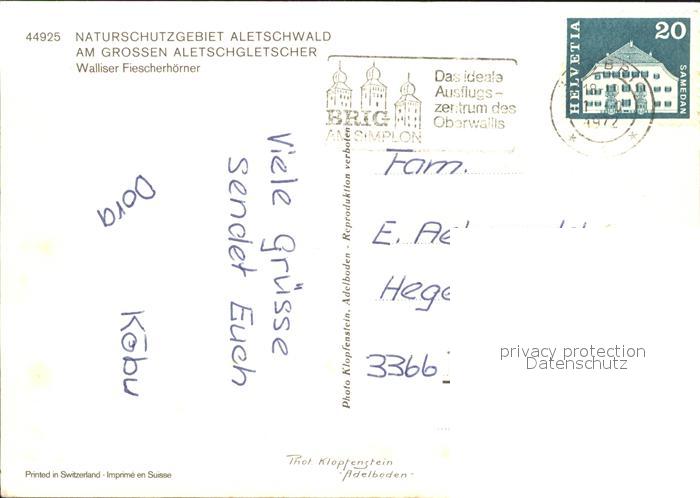 44925 NATURSCHUTZGEBIET ALETSCHWALD
AM GROSSEN ALETSCHGLETSCHER
Walliser Fiescherhörner
BRIG
AM SIMPLON
Das ideale
Ausflugs-
zentrum des
Oberwallis
1972
HELVETIA
20
SAMEDAN
Viele Grüsse
sendet Euch
Dora Köbu
Photo Klopfenstein, Adelboden - Reproduktion verboten
Fam.
E.
3366
privacy protection
Datenschutz
Phot. Klopfenstein
- Adelboden -
Printed in Switzerland - Imprimé en Suisse